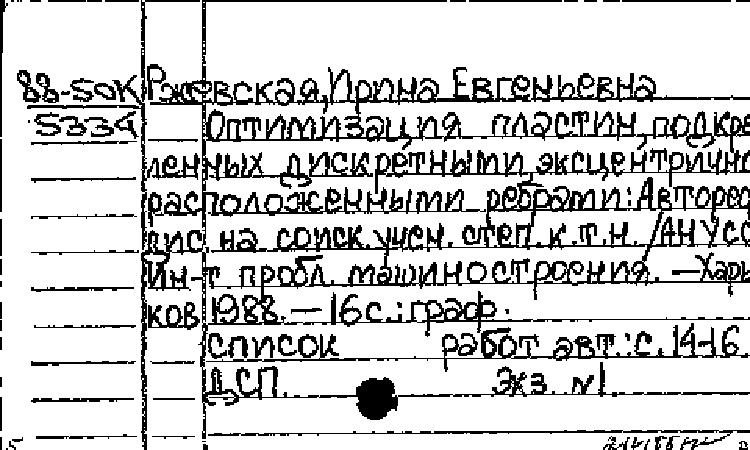 88-50К Ржевская, Ирина Евгеньевна
5334 Оптимизация пластин, подкре
ленных дискретными, эксцентрично
расположенными ребрами: Авторе
дис на соиск. учен. степ. к.т.н. /АН УСС
Ин-т пробл. машиностроения. — Харь
ков 1988. — 16 с.: граф.
список работ авт.: с. 14-16
ДСП. Экз. N1